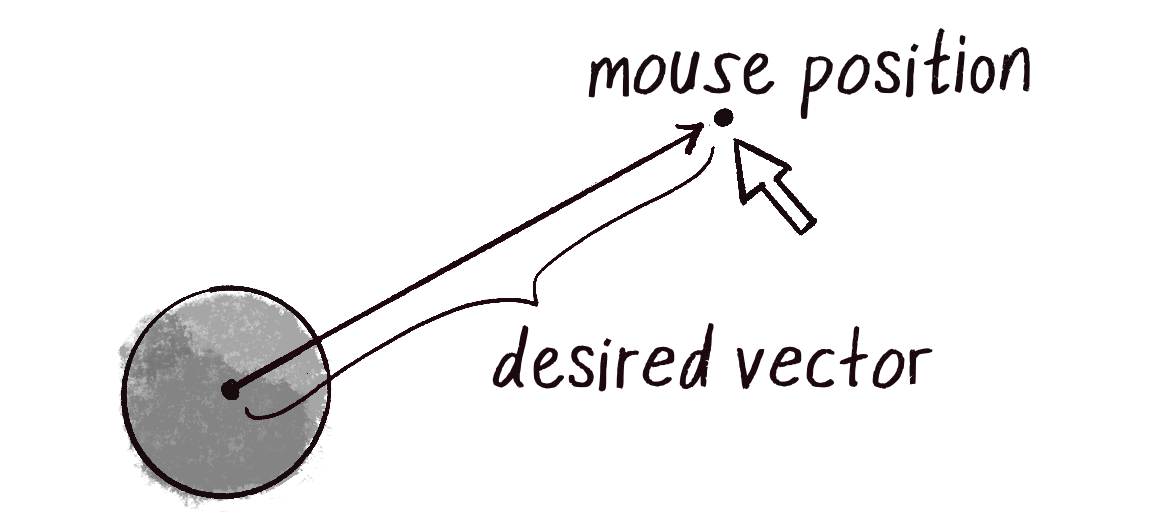 mouse position
desired vector